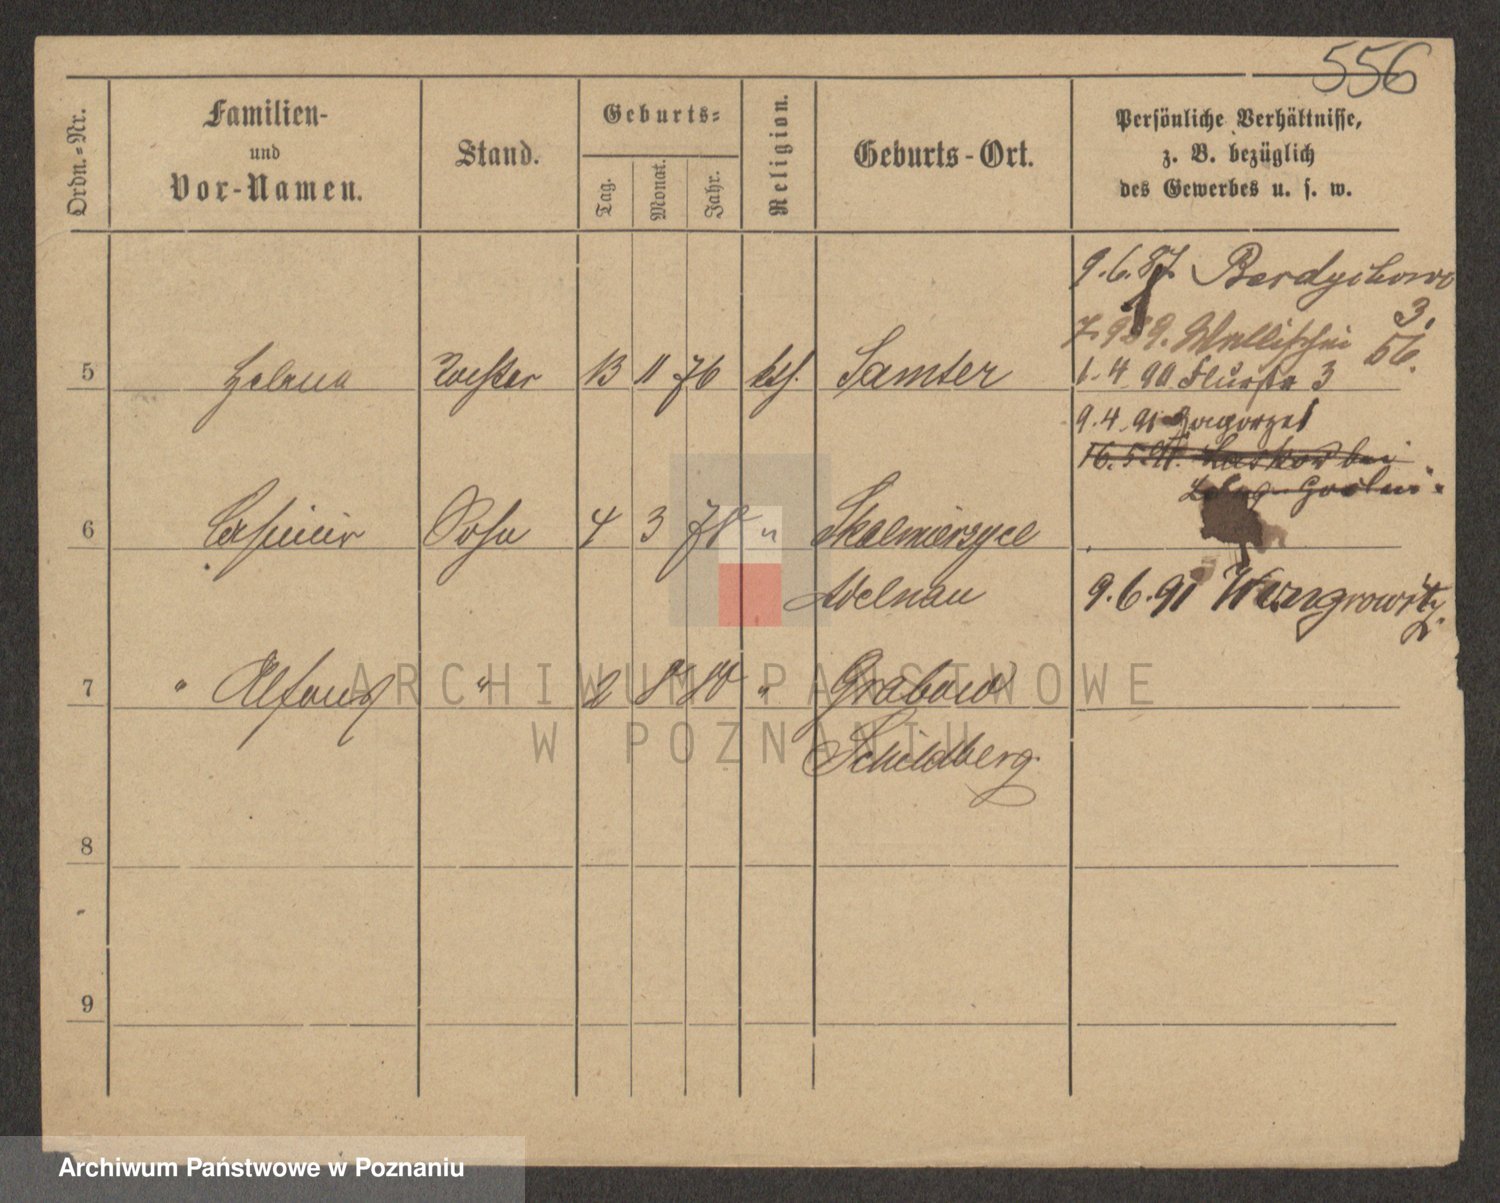 556
Ordn.-Nr.
Familien-
und
Vor-Namen.
Stand.
Geburts-
Tag.
Monat.
Jahr.
Religion.
Geburts-Ort.
Persönliche Verhältnisse,
z. B. bezüglich
des Gewerbes u. s. w.
9.6.87. Berdychowo
3.
7.9 89. Wallischei 56.
5 Helena Tochter 13 11 76 kth. Samter
1.4 90 Flurstr 3
9.4.91 Zagorze 1
16.5.91. bei
Goslin
6 Casimir Sohn 4 3 78 " Skalmierzyce
Adelnau
9.6.91 Wongrowitz
7 " Alfons " 2 8 80 " Grabow
Schildberg.
8
9
ARCHIWUM PAŃSTWOWE
W POZNANIU
Archiwum Państwowe w Poznaniu